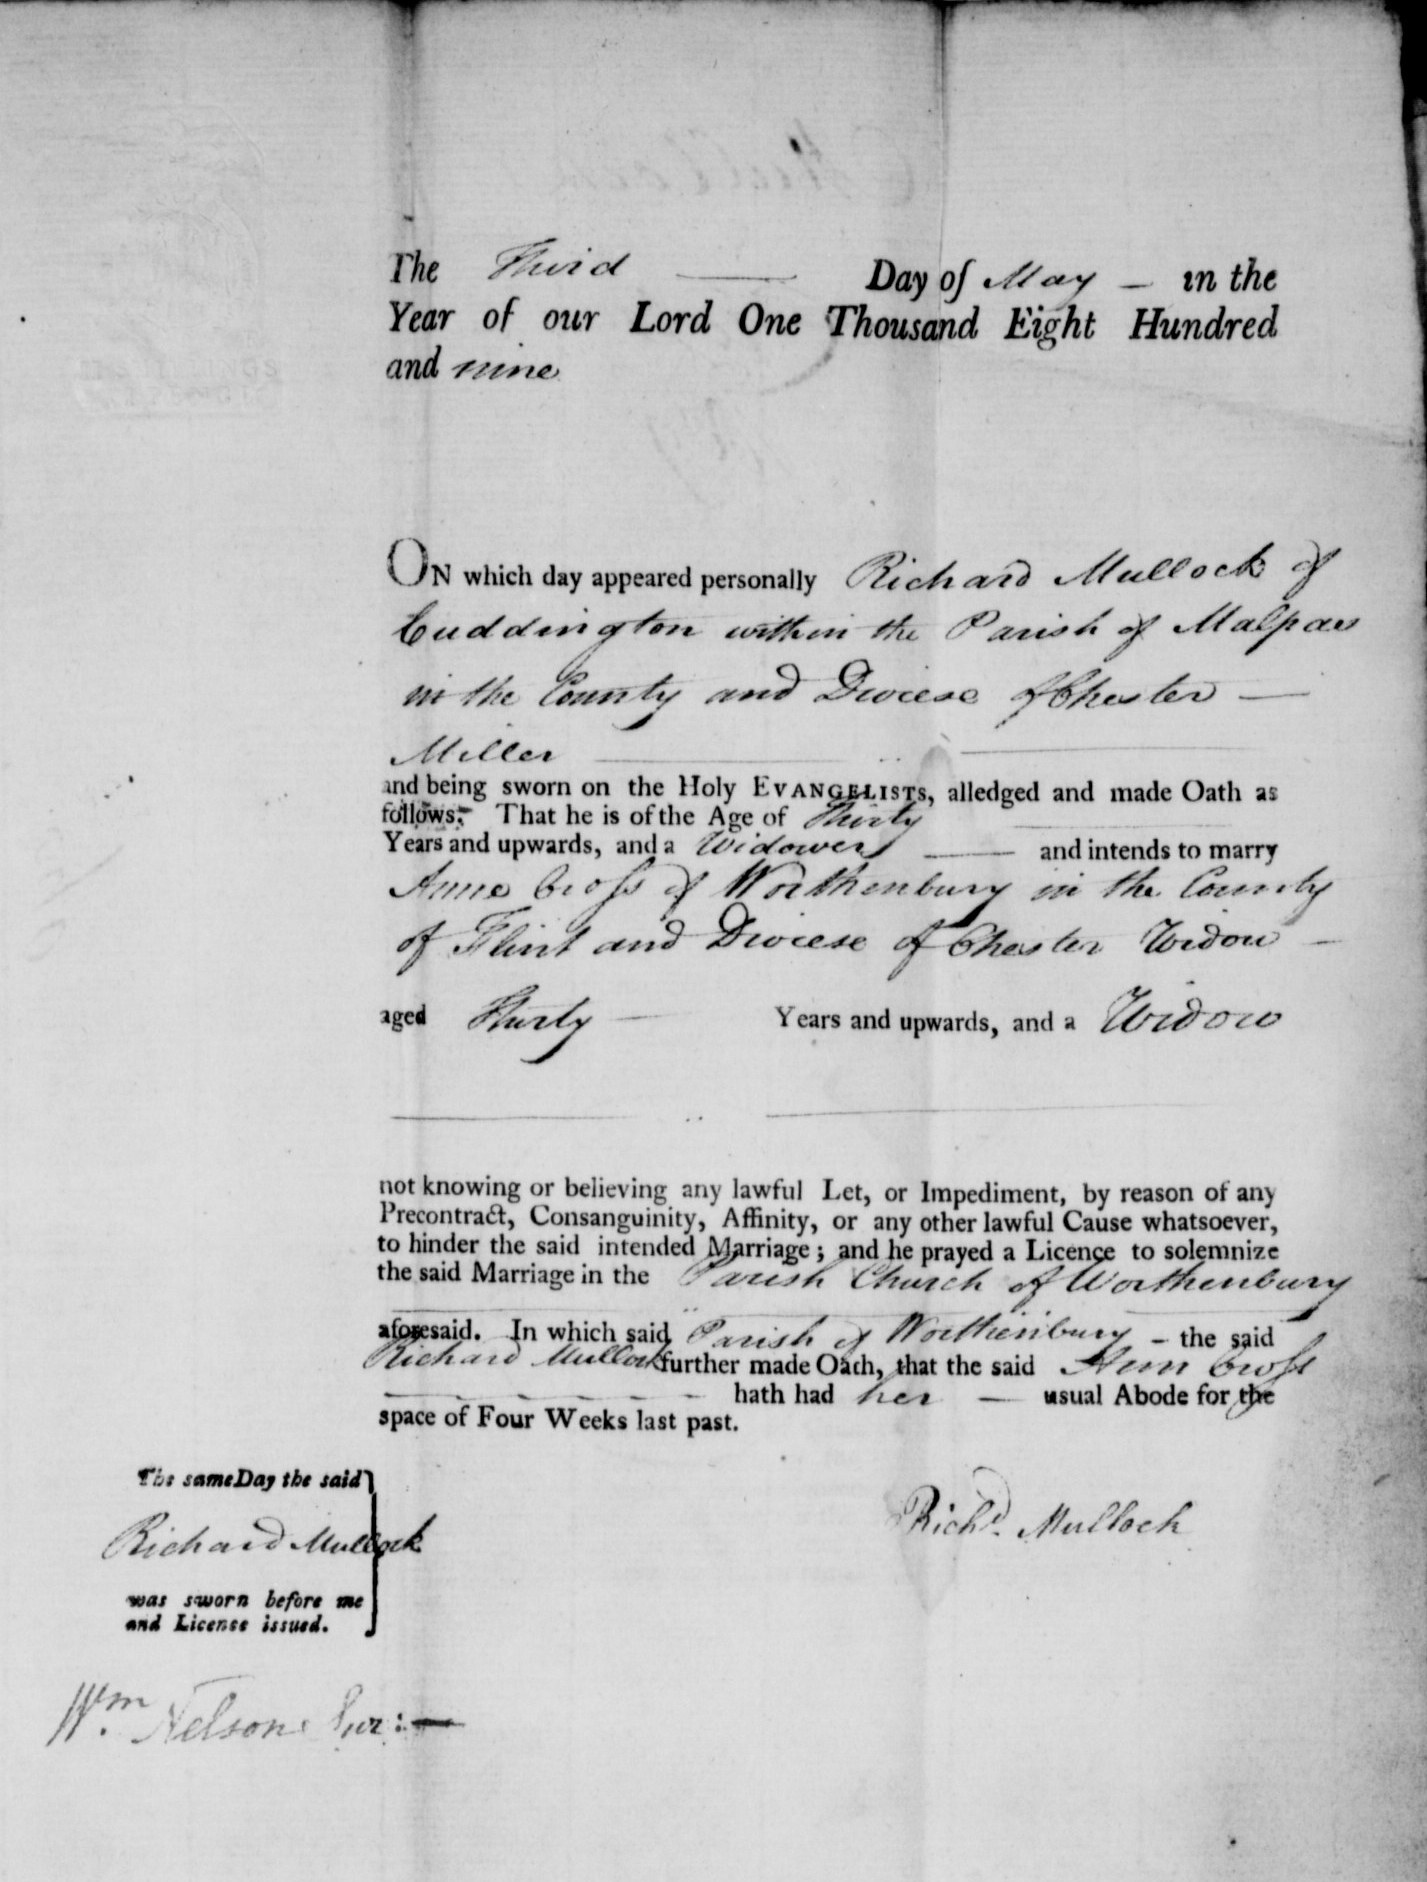 The Third Day of May – in the
Year of our Lord One Thousand Eight Hundred
and nine
ON which day appeared personally Richard Mullock of
Cuddington within the Parish of Malpas
in the County and Diocese of Chester —
Miller
and being sworn on the Holy EVANGELISTS, alledged and made Oath as
follows; That he is of the Age of Thirty
Years and upwards, and a Widower — and intends to marry
Anne Cross of Worthenbury in the County
of Flint and Diocese of Chester Widow –
aged Thirty — Years and upwards, and a Widow
not knowing or believing any lawful Let, or Impediment, by reason of any
Precontract, Consanguinity, Affinity, or any other lawful Cause whatsoever,
to hinder the said intended Marriage; and he prayed a Licence to solemnize
the said Marriage in the Parish Church of Worthenbury
aforesaid. In which said Parish of Worthenbury – the said
Richard Mullock further made Oath, that the said Ann Cross
hath had her — usual Abode for the
space of Four Weeks last past.
The same Day the said
Richard Mullock
was sworn before me
and License issued.
Richd. Mullock
Wm. Nelson Sur: —